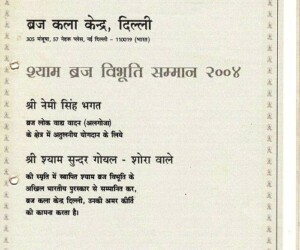 ब्रज कला केन्द्र, दिल्ली
305 मंजूषा, 57 नेहरू प्लेस, नई दिल्ली - 110019 (भारत)
श्याम ब्रज विभूति सम्मान २००४
श्री नेमी सिंह भगत
ब्रज लोक वाद्य वादन (अलगोजा)
के क्षेत्र में अतुलनीय योगदान के लिये
श्री श्याम सुन्दर गोयल - शोरा वाले
की स्मृति में स्थापित श्याम ब्रज विभूति के
अखिल भारतीय पुरस्कार से सम्मानित कर,
ब्रज कला केन्द्र दिल्ली, उनकी अमर कीर्ति
की कामना करता है।